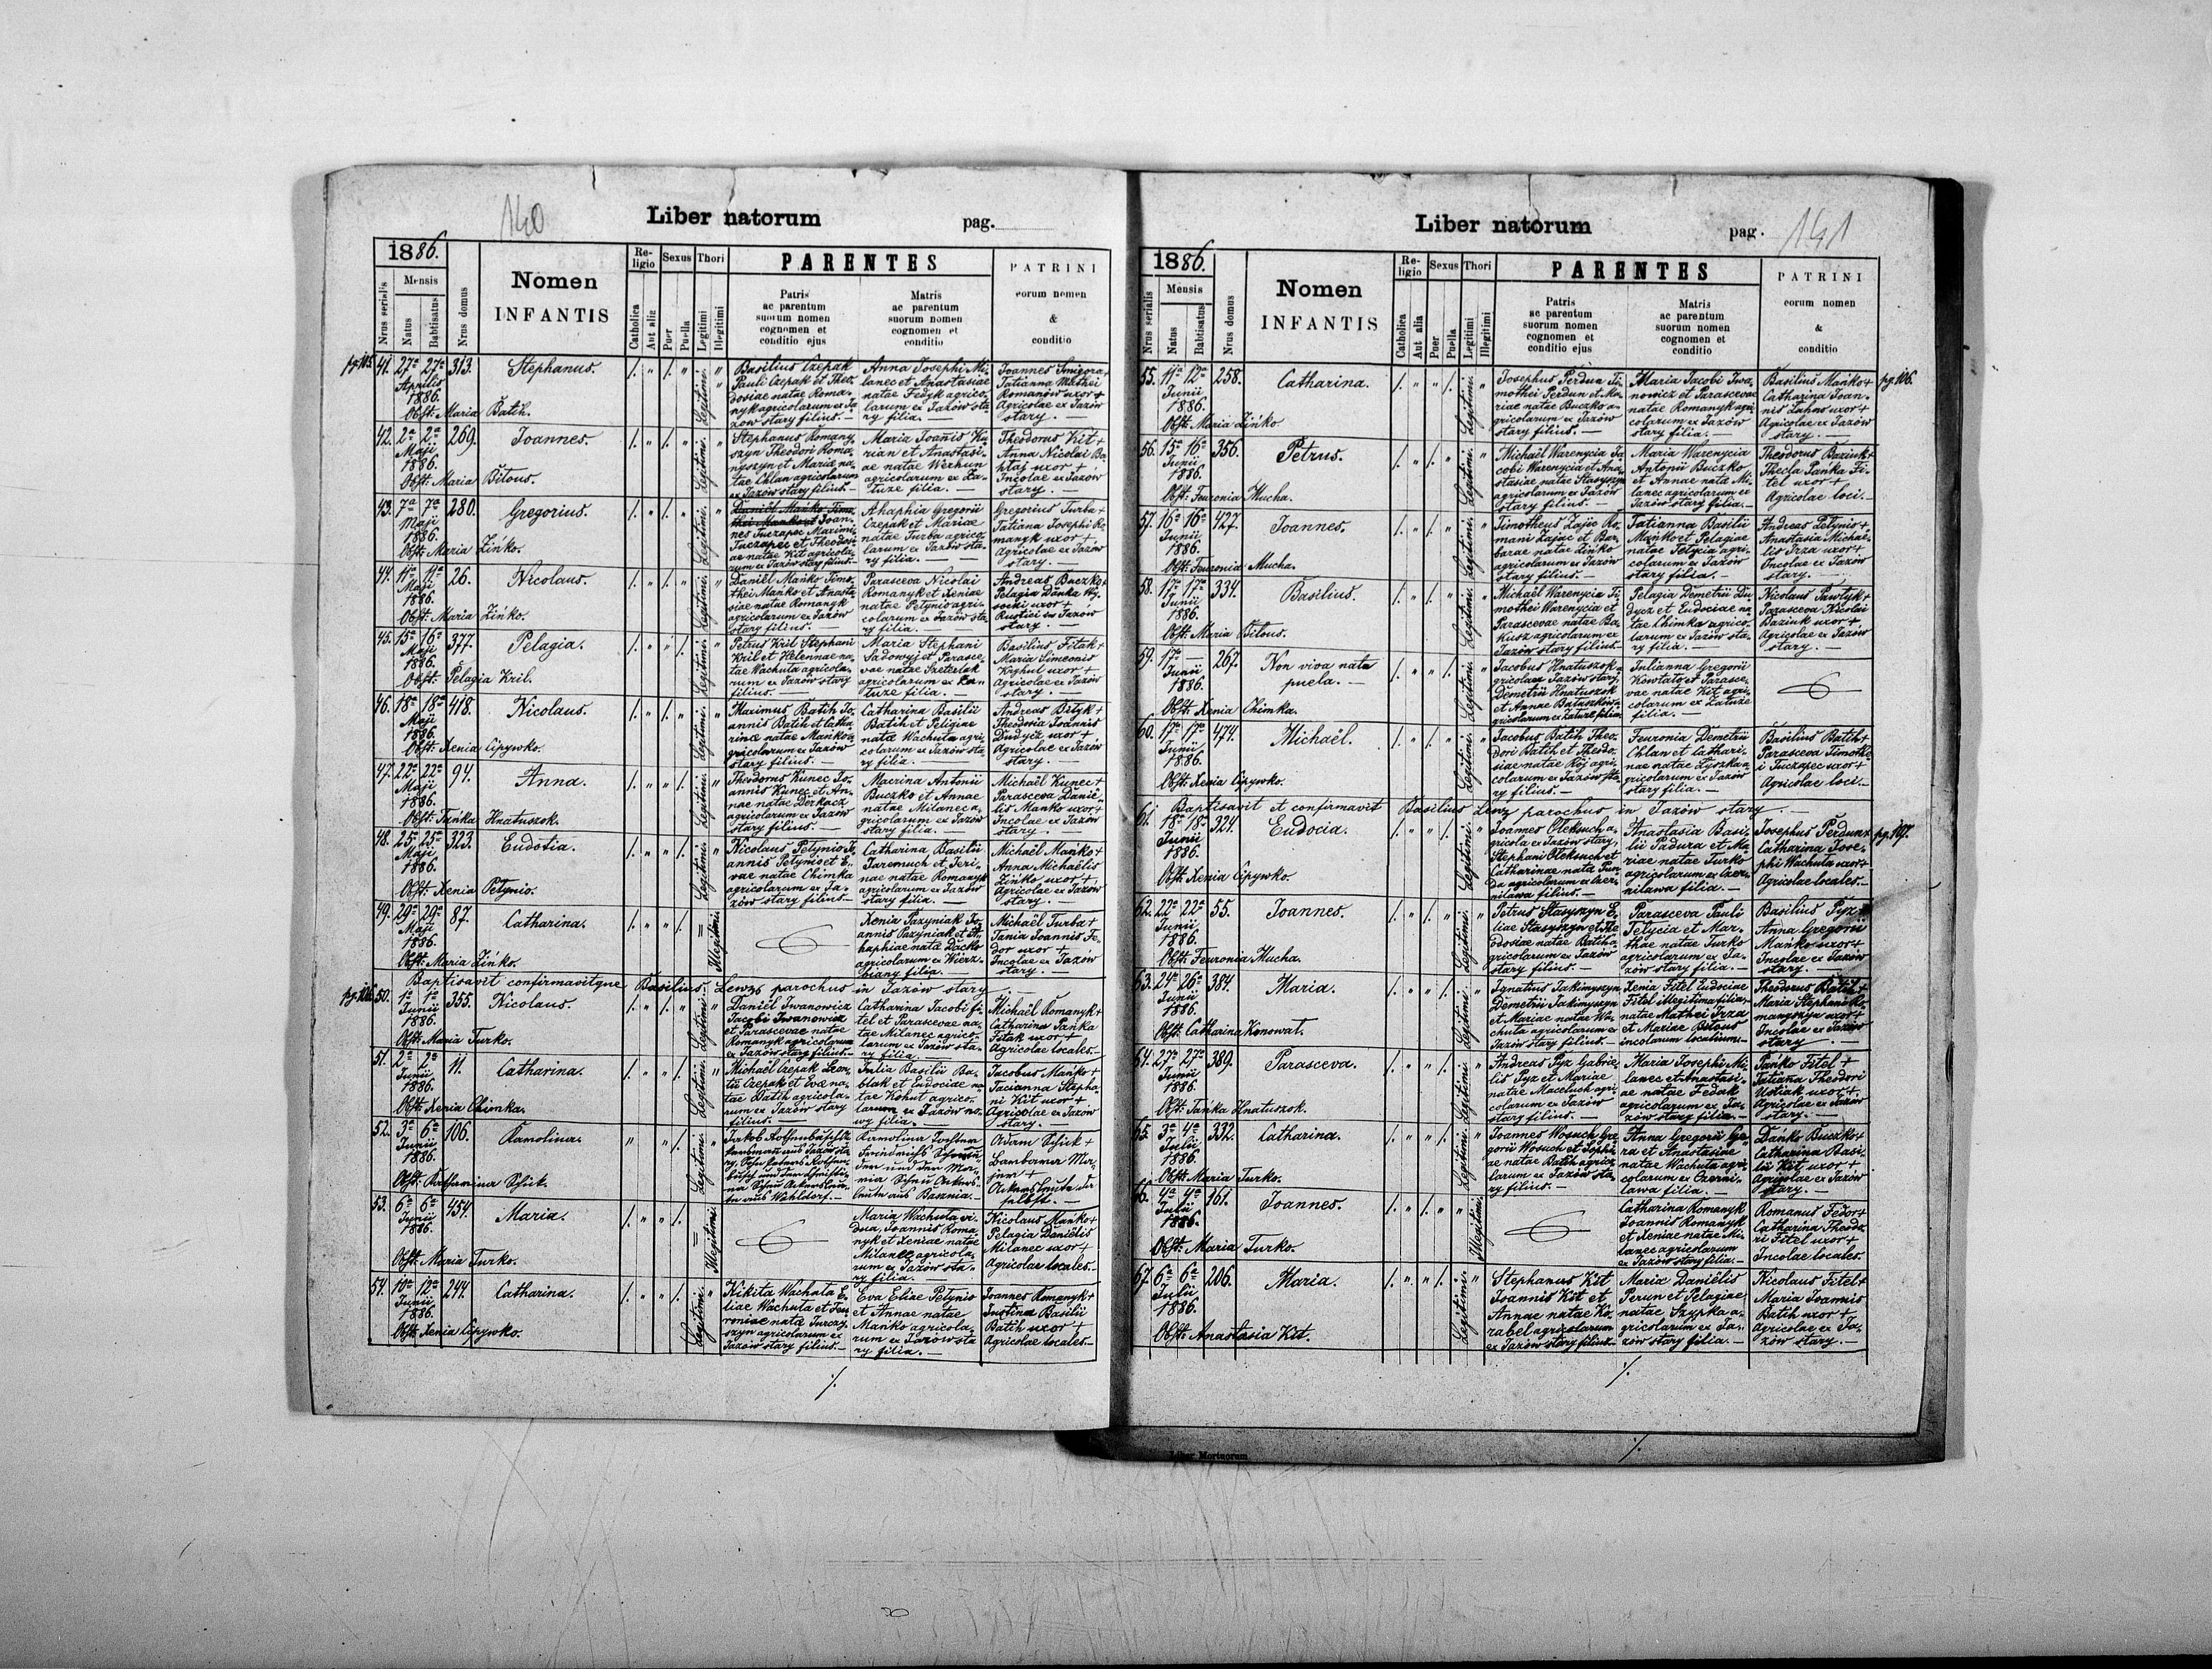 140
Liber natorum
pag.
1886.
Nrus serialis
Mensis
Natus
Babtisatus
Nrus domus
Nomen
INFANTIS
Religio
Catholica
Aut alia
Sexus
Puer
Puella
Thori
Legitimi
Illegitimi
PARENTES
Patris
ac parentum
suorum nomen
cognomen et
conditio ejus
Matris
ac parentum
suorum nomen
cognomen et
conditio
PATRINI
eorum nomen
&
conditio
41. 27a 27a Aprilis 1886. 313. Stephanus. Legitimi.
Obst: Maria Batih.
Basilius Czepak
Pauli Czepak et Theo-
dosiae natae Roma-
nyk agricolarum ex Ja-
zów stary filius.
Anna Josephi Mi-
lanec et Anastasiae
natae Fedyk agrico-
larum ex Jazów sta-
ry filia.
Joannes Smigora +
Tatianna Mathei
Romanów uxor +
Agricolae ex Jazów
stary.
42. 2a 2a Maji 1886. 269. Joannes. Legitimi.
Obst: Maria Bitous.
Stephanus Romany-
szyn Theodori Roma-
nyszyn et Mariae na-
tae Chlan agricolarum
ex Jazów stary filius.
Maria Joanis Ku-
rian et Anastasi-
ae natae Werhun
agricolarum ex Za-
tuze filia.
Theodorus Kit +
Anna Nicolai
uxor +
Incolae ex Jazów
stary.
43. 7a 7a Maji 1886. 280. Gregorius. Legitimi.
Obst: Maria Zińko.
Joan-
nes Tuczapec Maximi
Tuczapec et Theodosi-
ae natae Kit agricola-
rum ex Jazów stary filius.
Ahaphia Gregorii
Czepak et Mariae
natae Turba agrico-
larum ex Jazów sta-
ry filia.
Gregorius Turba +
Tatiana Josephi Ro-
manyk uxor +
Agricolae ex Jazów
stary.
44. 11a 11a Maji 1886. 26. Nicolaus. Legitimi.
Obst: Maria Zińko.
Daniël Mańko Timo-
thei Mańko et Anasta-
siae natae Romanyk
agricolarum ex Jazów
stary filius.
Parasceva Nicolai
Romanyk et Xeniae
natae Petynio agri-
colarum ex Jazów sta-
ry filia.
Andreas Buczko +
Pelagia Dańka Wy-
socki uxor +
Rustici ex Jazów
stary.
45. 15a 16a Maji 1886. 377. Pelagia. Legitimi.
Obst: Pelagia Kril.
Petrus Kril Stephani
Kril et Helennae na-
tae Wachuta agricola-
rum ex Jazów stary
filius.
Maria Stephani
Sadowyj et Parasce-
vae natae
agricolarum ex
tuze filia.
Basilius Fitak +
Maria Simeonis
uxor +
Agricolae ex Jazów
stary.
46. 18a 18a Maji 1886. 418. Nicolaus. Legitimi.
Obst: Xenia Cipywko.
Maximus Batih Jo-
annis Batih et Catha-
rinae natae Mańko a-
gricolarum ex Jazów
stary filius.
Catharina Basilii
Batih et Peligiae
natae Wachuta agri-
colarum ex Jazów sta-
ry filia.
Andreas Bityk +
Theodosia Joannis
Dudycz uxor +
Agricolae ex Jazów
stary.
47. 22a 22a Maji 1886. 94. Anna. Legitimi.
Obst: Tańka Hnatuszok.
Theodorus Kunec Jo-
annis Kunec et An-
nae natae Derkacz
agricolarum ex Jazów
stary filius.
Macrina Antonii
Buczko et Annae
natae Milanec a-
gricolarum ex Jazów
stary filia.
Michaël Kunec +
Parasceva Danië-
lis Mańko uxor +
Incolae ex Jazów
stary.
48. 25a 25a Maji 1886. 323. Eudotia. Legitimi.
Obst: Xenia Petynio.
Nicolaus Petynio Jo-
annis Petynio et E-
vae natae Chimka
agricolarum ex Ja-
zów stary filius.
Catharina Basilii
Jaremuch et Iri-
nae natae Romanyk
agricolarum ex Jazów
stary filia.
Michaël Mańko +
Anna Michaëlis
Zińko uxor +
Agricolae ex Jazów
stary.
49. 29a 29a Maji 1886. 87. Catharina. Illegitimi.
Obst: Maria Zińko.
Xenia Pazyniak Jo-
annis Pazyniak et A-
haphiae nata Dacko
agricolarum ex Wierz-
biany filia.
Michaël Turba +
Tania Joannis Fe-
dor uxor +
Incolae ex Jazów
stary.
Baptisavit confirmavitque Basilius Lewzs parochus in Jazów stary.
pg.106. 50. 1a 1a Junii 1886. 355. Nicolaus. Legitimi.
Obst: Maria Turko.
Daniël Iwanowicz
Jacobi Iwanowicz
et Parascevae natae
Romanyk agricolarum
ex Jazów stary filius.
Catharina Jacobi Fi-
tel et Parascevae na-
tae Milanec agrico-
larum ex Jazów sta-
ry filia.
Michaël Romanyk +
Catharina Pańka
Fitak uxor +
Agricolae locales.
51. 2a 2a Junii 1886. 11. Catharina. Legitimi.
Obst: Xenia Chimka.
Michaël Czepak Leon-
tii Czepak et Evae na-
tae Batih agricola-
rum ex Jazów stary
filius.
Julia Basilii Ba-
blak et Eudociae na-
tae Kohut agrico-
larum ex Jazów no-
wy filia.
Jacobus Mańko +
Tacianna Stepha-
ni Kit uxor +
Agricolae ex Jazów
stary.
52. 3a 6a Junii 1886. 106. Karolina. Legitimi.
53. 6a 6a Junii 1886. 454. Maria. Illegitimi.
Obst: Maria Turko.
Maria Wachuta vi-
dua, Joannis Roma-
nyk et Xeniae natae
Milanec agricola-
rum ex Jazów sta-
ry filia.
Nicolaus Mańko +
Pelagia Daniëlis
Milanec uxor +
Agricolae locales.
54. 10a 12a Junii 1886. 244. Catharina. Legitimi.
Obst: Xenia Cipywko.
Nikita Wachuta E-
liae Wachuta et Feu-
roniae nata Turczy-
szyn agricolarum ex
Jazów stary filius.
Eva Eliae Petynio
et Annae natae
Mańko agricola-
rum ex Jazów sta-
ry filia.
Joannes Romanyk +
Justina Basilii
Batih uxor +
Agricolae locales.
Liber natorum
pag. 141
1886.
Nrus serialis
Mensis
Natus
Babtisatus
Nrus domus
Nomen
INFANTIS
Religio
Catholica
Aut alia
Sexus
Puer
Puella
Thori
Legitimi
Illegitimi
PARENTES
Patris
ac parentum
suorum nomen
cognomen et
conditio ejus
Matris
ac parentum
suorum nomen
cognomen et
conditio
PATRINI
eorum nomen
&
conditio
55. 11a 12a Junii 1886. 258. Catharina. Legitimi. pg.106.
Obst: Maria Zińko.
Josephus Perdun Ti-
mothei Perdun et Ma-
riae natae Buczko a-
gricolarum ex Jazów
stary filius.
Maria Jacobi Iwa-
nowicz et Parascevae
natae Romanyk agri-
colarum ex Jazów
stary filia.
Basilius Mańko +
Catharina Joan-
nis uxor +
Agricolae ex Jazów
stary.
56. 15a 16a Junii 1886. 356. Petrus. Legitimi.
Obst: Feuronia Mucha.
Michaël Warenycia Ja-
cobi Warenycia et Ana-
stasiae natae Stasyszyn
agricolarum ex Jazów
stary filius.
Maria Warenycia
Antonii Buczko
et Annae nata Mi-
lanec agricolarum ex
Jazów stary filia.
Theodorus Baziuk +
Thecla Pańka Fi-
tel uxor +
Agricolae loci.
57. 16a 16a Junii 1886. 427. Joannes. Legitimi.
Obst: Feuronia Mucha.
Timotheus Zajac Ro-
mani Zajac et Bar-
barae natae Zińko
agricolarum ex Jazów
stary filius.
Tatianna Basilii
Mańko et Pelagiae
natae Telycia agri-
colarum ex Jazów
stary filia.
Andreas Petynio +
Anastasia Michaë-
lis Irza uxor +
Incolae ex Jazów
stary.
58. 17a 17a Junii 1886. 334. Basilius. Legitimi.
Obst: Maria Bitous.
Michaël Warenycia Ti-
mothei Warenycia et
Parascevae natae Ba-
kusz agricolarum ex
Jazów stary filius.
Pelagia Demetrii Du-
dycz et Eudociae na-
tae Chimka agrico-
larum ex Jazów sta-
ry filia.
Nicolaus Pawtyk +
Parasceva Nicolai
Baziuk uxor +
Agricolae ex Jazów
stary.
59. 17a Junii 1886. 267. Non viva nata puela. Legitimi.
Obst: Xenia Chimka.
Jacobus Hnatuszok a-
gricola ex Jazów stary,
Demetrii Hnatuszok
et Annae
agricolarum ex Zatuze filius.
Julianna Gregorii
Kowtato et Parasce-
vae natae Kit agri-
colarum ex Zatuze
filia.
60. 17a 17a Junii 1886. 474. Michaël. Legitimi.
Obst: Xenia Cipywko.
Jacobus Batih Theo-
dori Batih et Theodo-
siae natae Kój agri-
colarum ex Jazów sta-
ry filius.
Feuronia Demetrii
Chlan et Cathari-
nae natae Lyszka a-
gricolarum ex Jazów
stary filia.
Basilius Batih +
Parasceva Timothe-
i Tuczapec uxor +
Agricolae loci.
Baptisavit et confirmavit Basilius Lewzs parochus in Jazów stary.
61. 18a 18a Junii 1886. 324. Eudocia. Legitimi. pg.107.
Obst: Xenia Cipywko.
Joannes Oleksuch a-
gricola ex Jazów stary,
Stephani Oleksuch et
Catharinae nata
agricolarum ex Czer-
nilawa filius.
Anastasia Basi-
lii Padura et Ma-
riae natae Turko
agricolarum ex Czer-
nilawa filia.
Josephus Perdun +
Catharina Jose-
phi Wachuta uxor +
Agricolae locales.
62. 22a 22a Junii 1886. 55. Joannes. Legitimi.
Obst: Feuronia Mucha.
Petrus Stasyszyn E-
liae Stasyszyn et The-
odosiae natae Batih a-
gricolarum ex Jazów
stary filius.
Parasceva Pauli
Telycia et Mar-
thae natae Turko
agricolarum ex Ja-
zów stary filia.
Basilius Pyz +
Anna Gregorii
Mańko uxor +
Incolae ex Jazów
stary.
63. 24a 26a Junii 1886. 384. Maria. Legitimi.
Obst: Catharina Konowat.
Ignatius Jakimyszyn
Demetrii Jakimyszyn
et Mariae natae Wa-
chuta agricolarum ex
Jazów stary filius.
Xenia Fitel Eudociae
Fitel illegitima filia,
natae Mathei Irza
et Mariae Bitous
incolarum localium.
Theodorus Batih +
Maria Stephani Ro-
manyszyn uxor +
Incolae ex Jazów
stary.
64. 27a 27a Junii 1886. 389. Parasceva. Legitimi.
Obst: Tańka Hnatuszok.
Andreas Pyz Gabrie-
lis Pyz et Mariae
natae Maceluch agri-
colarum ex Jazów
stary filius.
Maria Josephi Mi-
lanec et Anastasi-
ae natae Fedak
agricolarum ex Ja-
zów stary filia.
Pańko Fitel +
Tatiana Theodori
Ustiak uxor +
Agricolae ex Jazów
stary.
65. 3a 4a Julii 1886. 332. Catharina. Legitimi.
Obst: Maria Turko.
Joannes Wosuch Gre-
gorii Wosuch et Sophi-
ae natae Batih agrico-
larum ex Jazów sta-
ry filius.
Anna Gregorii Ge-
ra et Anastasiae
natae Wachuta agri-
colarum ex Czerni-
lawa filia.
Dańko Buczko +
Catharina Basi-
lii Kit uxor +
Agricolae ex Jazów
stary.
66. 4a 4a Julii 1886. 161. Joannes. Illegitimi.
Obst: Maria Turko.
Catharina Romanyk
Joannis Romanyk
et Xeniae natae Mi-
lanec agricolarum
ex Jazów stary filia.
Romanus Fedor +
Catharina Theodo-
ri Fitel uxor +
Incolae locales.
67. 6a 6a Julii 1886. 206. Maria. Legitimi.
Obst: Anastasia Kit.
Stephanus Kit
Joannis Kit et
Annae natae Ko-
rabel agricolarum
ex Jazów stary filius.
Maria Daniëlis
Perun et Pelagiae
natae Szypka a-
gricolarum ex Ja-
zów stary filia.
Nicolaus Fitel +
Maria Joannis
Batih uxor +
Agricolae ex Ja-
zów stary.
Liber Mortuorum